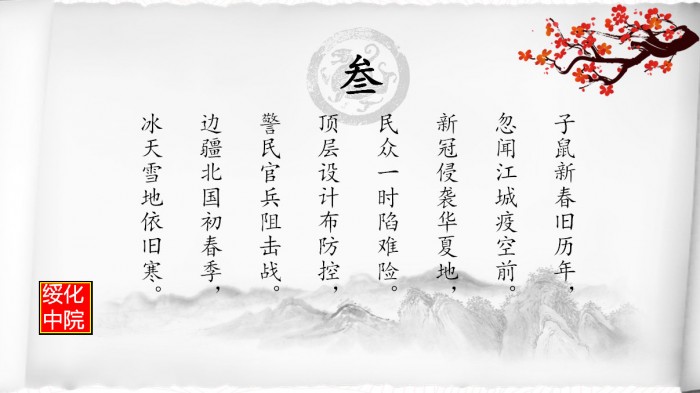 叁
子鼠新春旧历年，
忽闻江城疫空前。
新冠侵袭华夏地，
民众一时陷难险。
顶层设计布防控，
警民官兵阻击战。
边疆北国初春季，
冰天雪地依旧寒。
绥化
中院